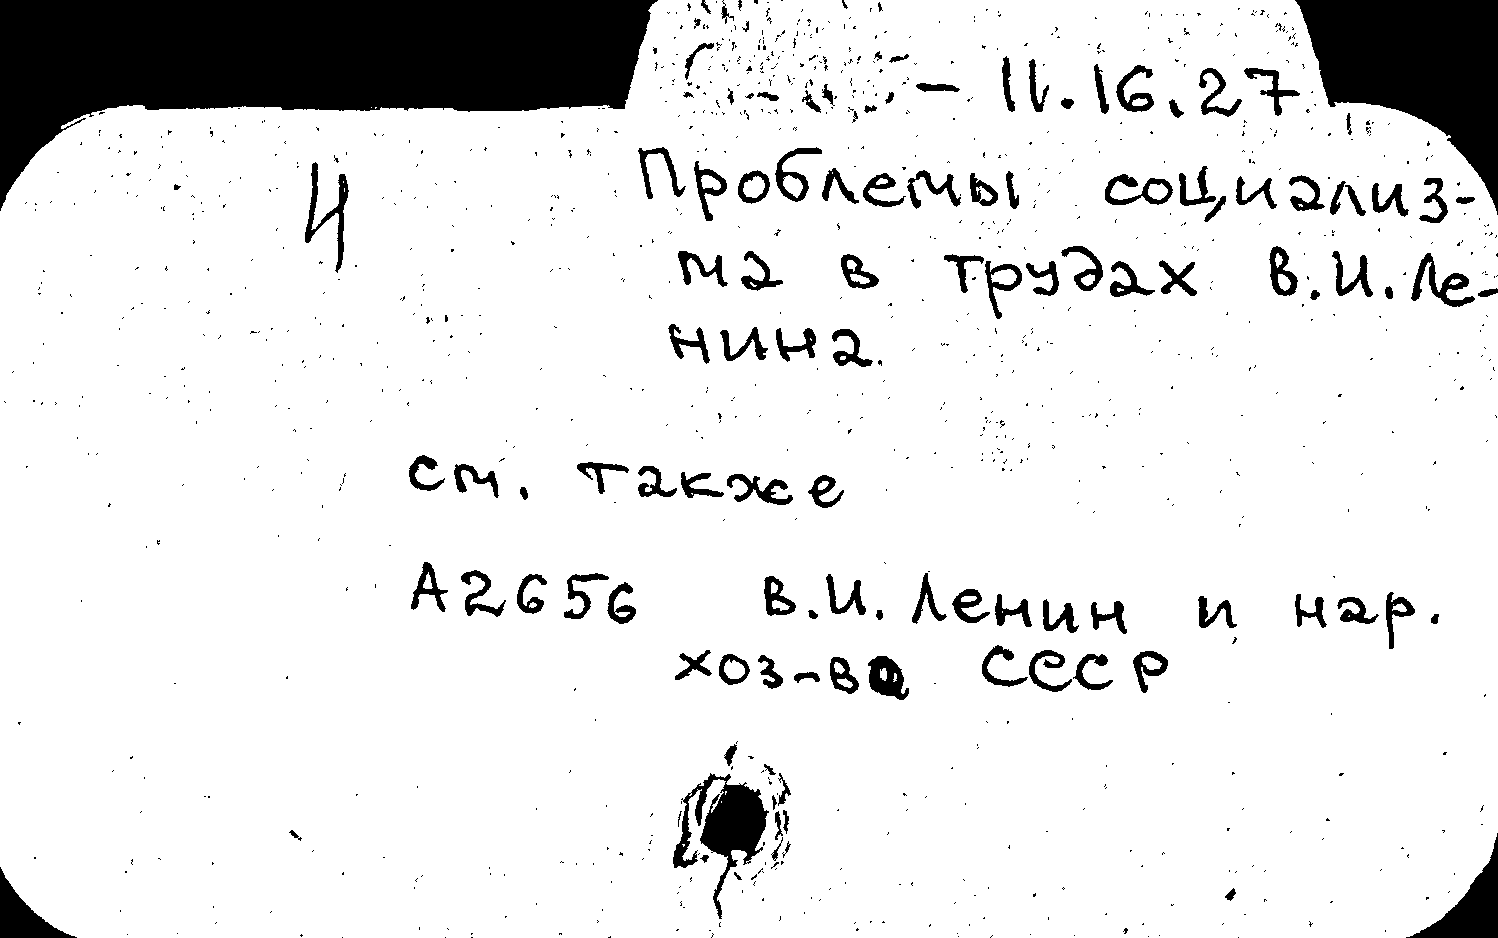 - 11.16.27
4 Проблемы социализ-
ма в трудах В.И.Ле-
нина.
см. также
А2656 В.И. Ленин и нар.
хоз-во СССР